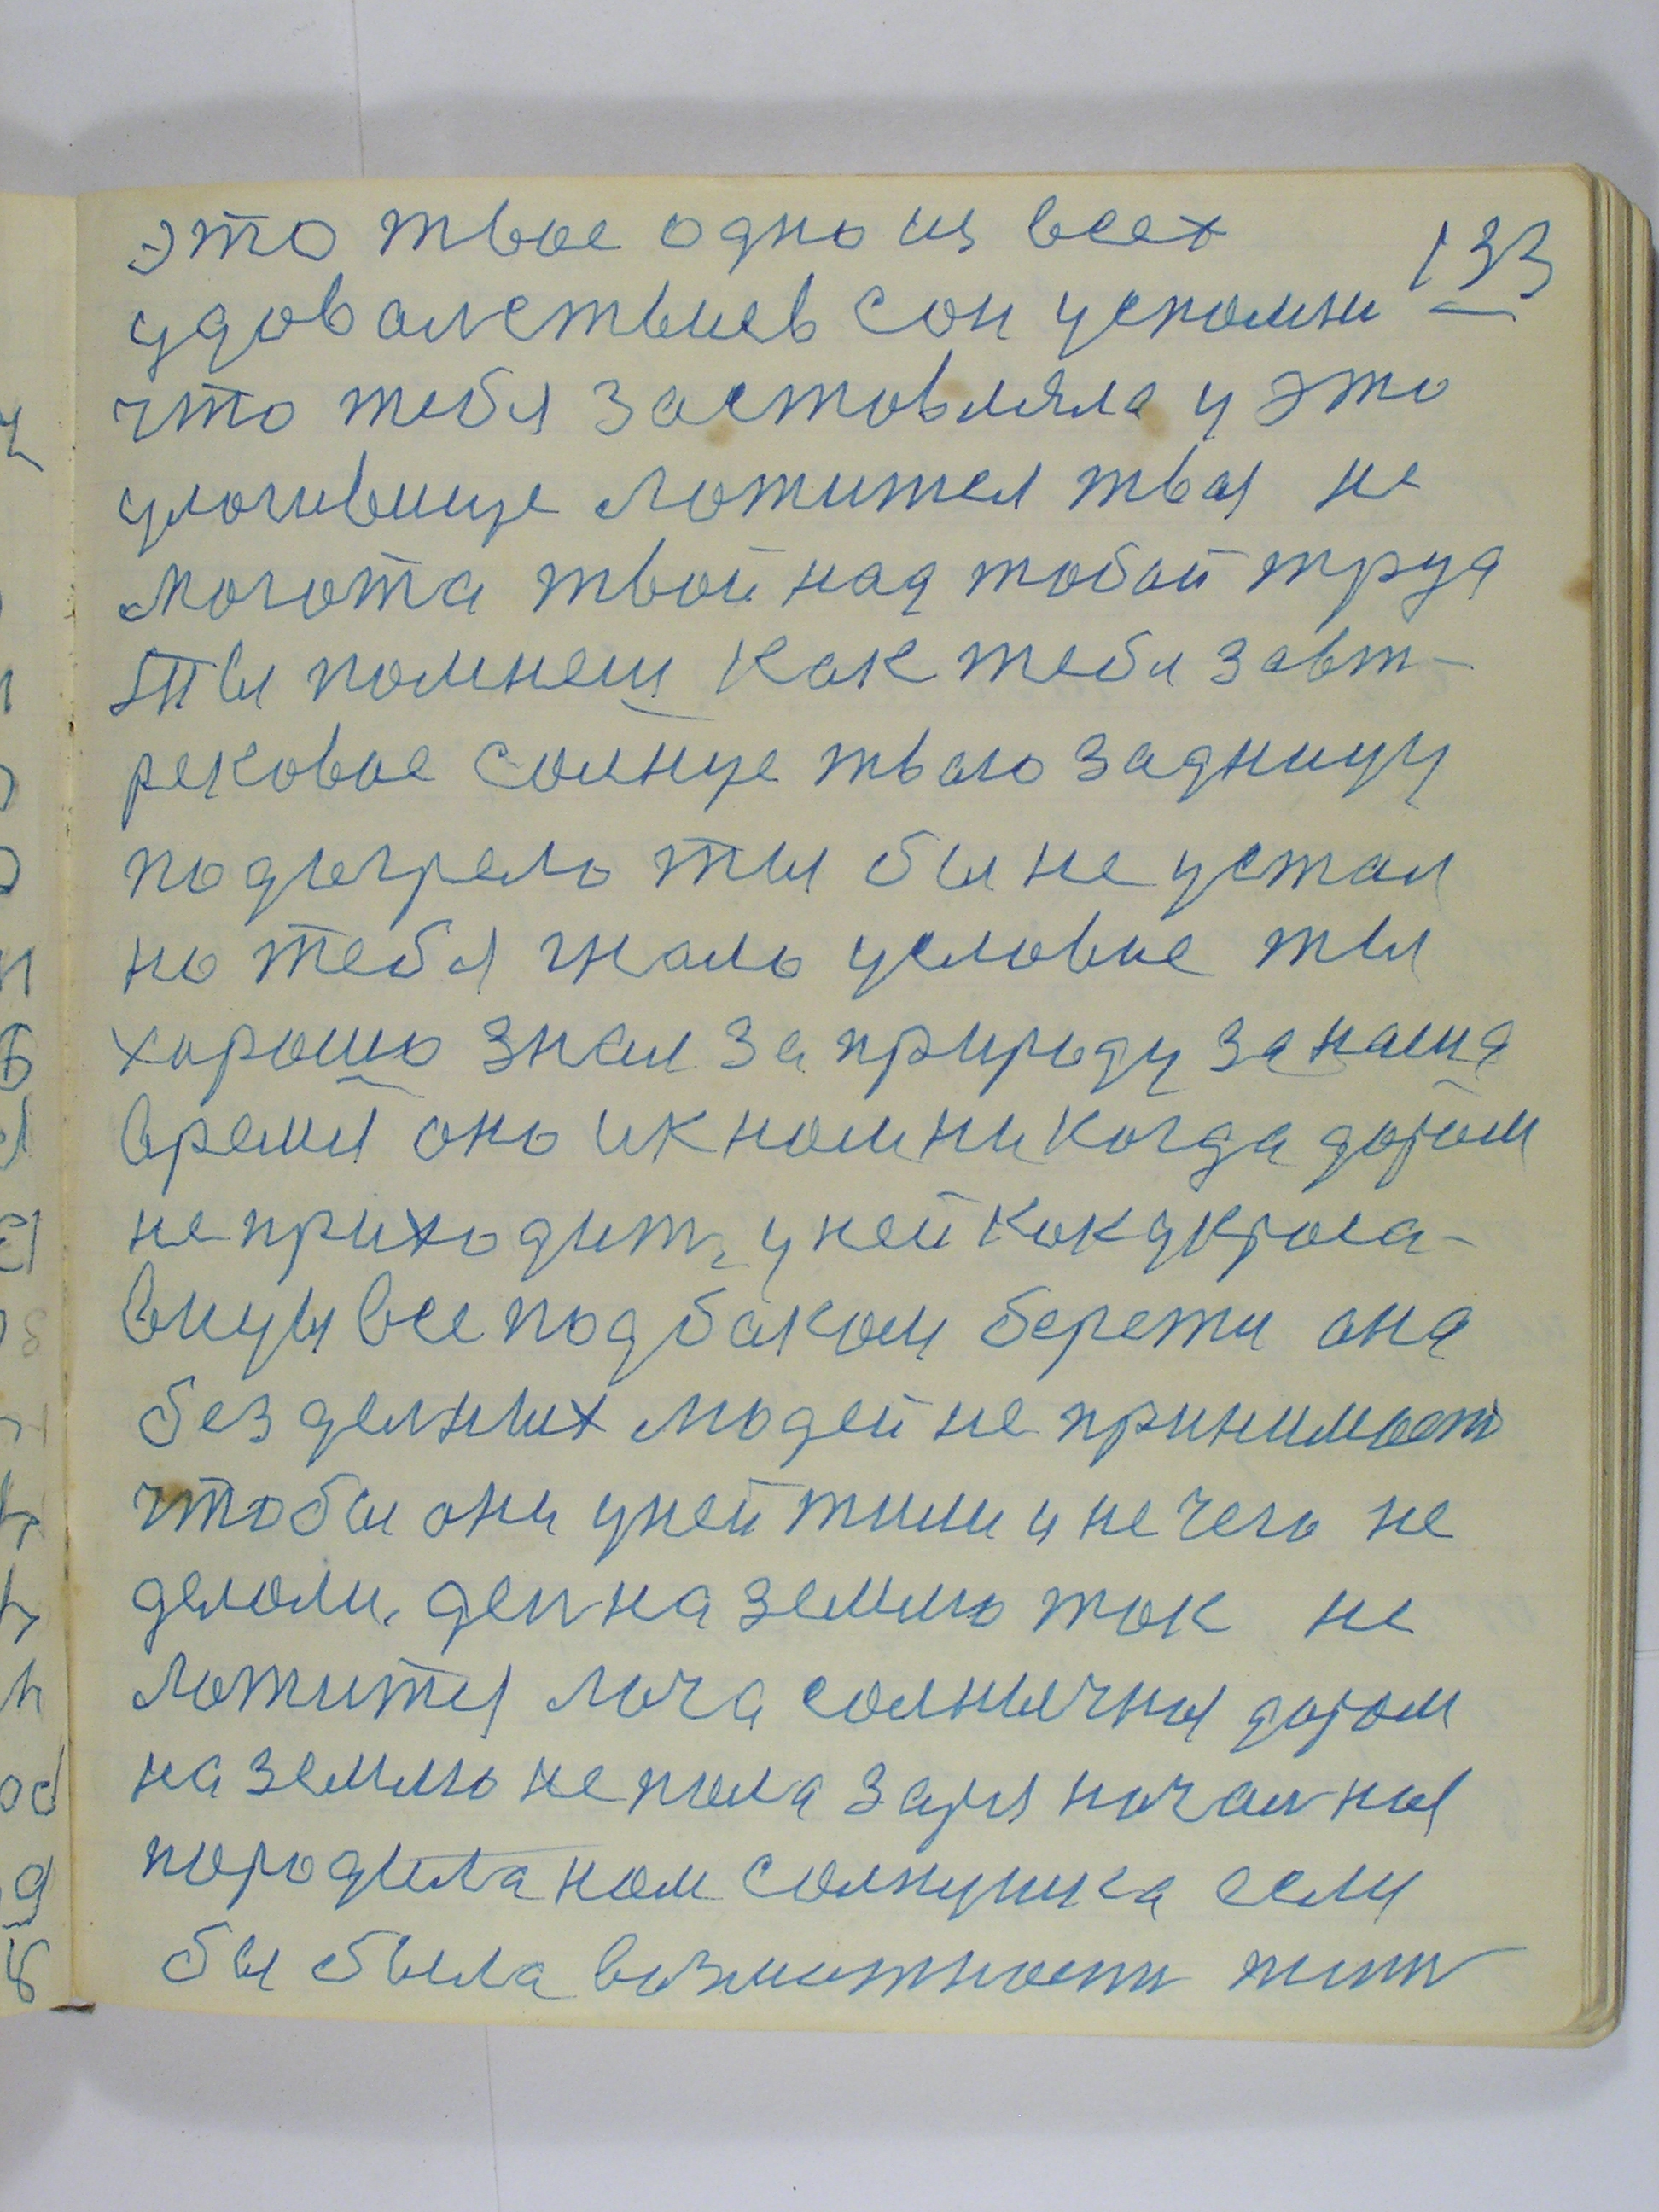 133
это твое одно из всех
удовалстьвиев сон успомни
что тебя застовляла у это
улогивище ложится твоя не
могота твой над тобой труд
Ты помнеш как тебя завт-
рековое солнце твою задницу
подыгрело ты бы не устал
но тебя гнало условие ты
хорошо знал за природу за наша
время оно и к ном никогда даром
не приходит, у ней как у краса-
вицы все под баком бережи она
без делних людей не принимает
чтобы они у ней жили и нечего не
делоли. ден на землю ток не
ложится луча солнычная даром
на землю не пола заря начальная
породила ном солнушка если
бы была возможность жить